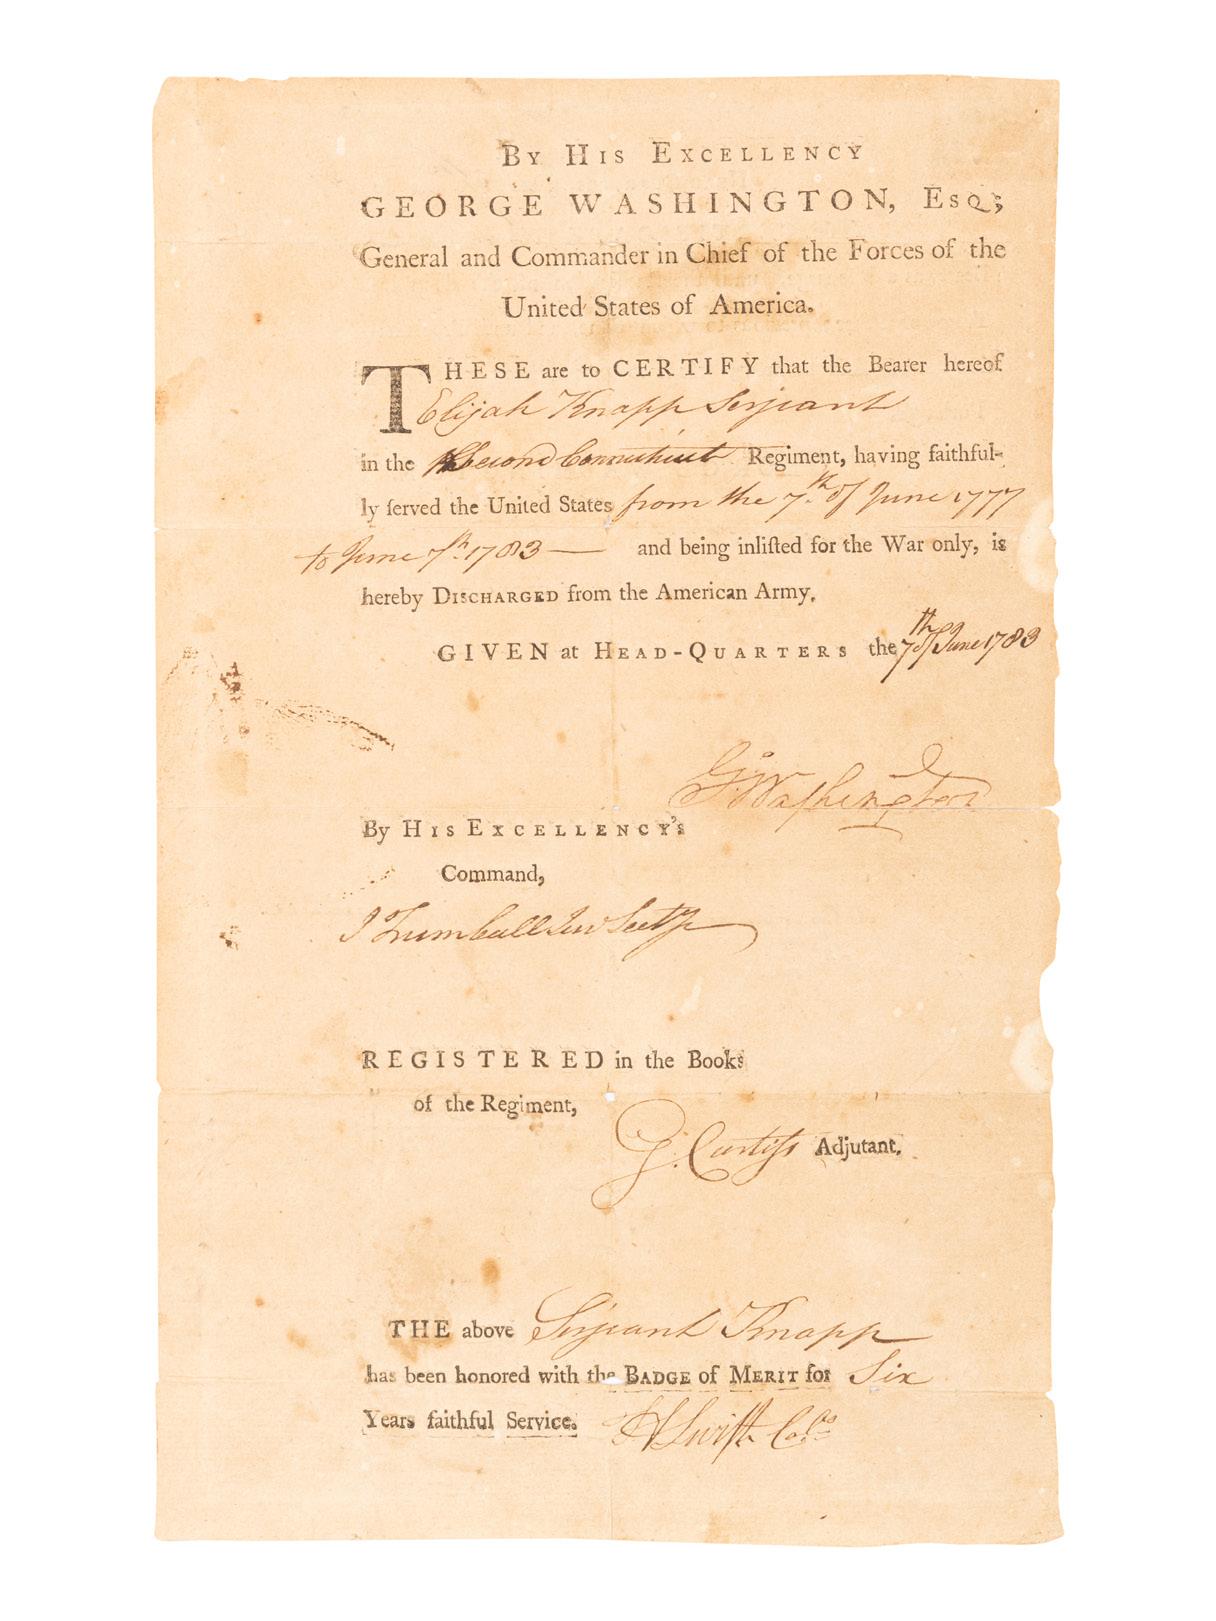 By His Excellency
GEORGE WASHINGTON, Esq;
General and Commander in Chief of the Forces of the
United States of America.
THESE are to CERTIFY that the Bearer hereof
Elijah Knapp Serjeant
in the Second Connecticut Regiment, having faithful-
ly ſerved the United States from the 7.th of June 1777
to June 7th 1783 — and being inliſted for the War only, is
hereby Discharged from the American Army.
GIVEN at Head-Quarters the 7th of June 1783
Go: Washington
By His Excellency's
Command,
J Trumbull Jun Secty
REGISTERED in the Books
of the Regiment,
G. Curtiss Adjutant.
THE above Serjeant Knapp
has been honored with the Badge of Merit for Six
Years faithful Service. H Swift Col.o